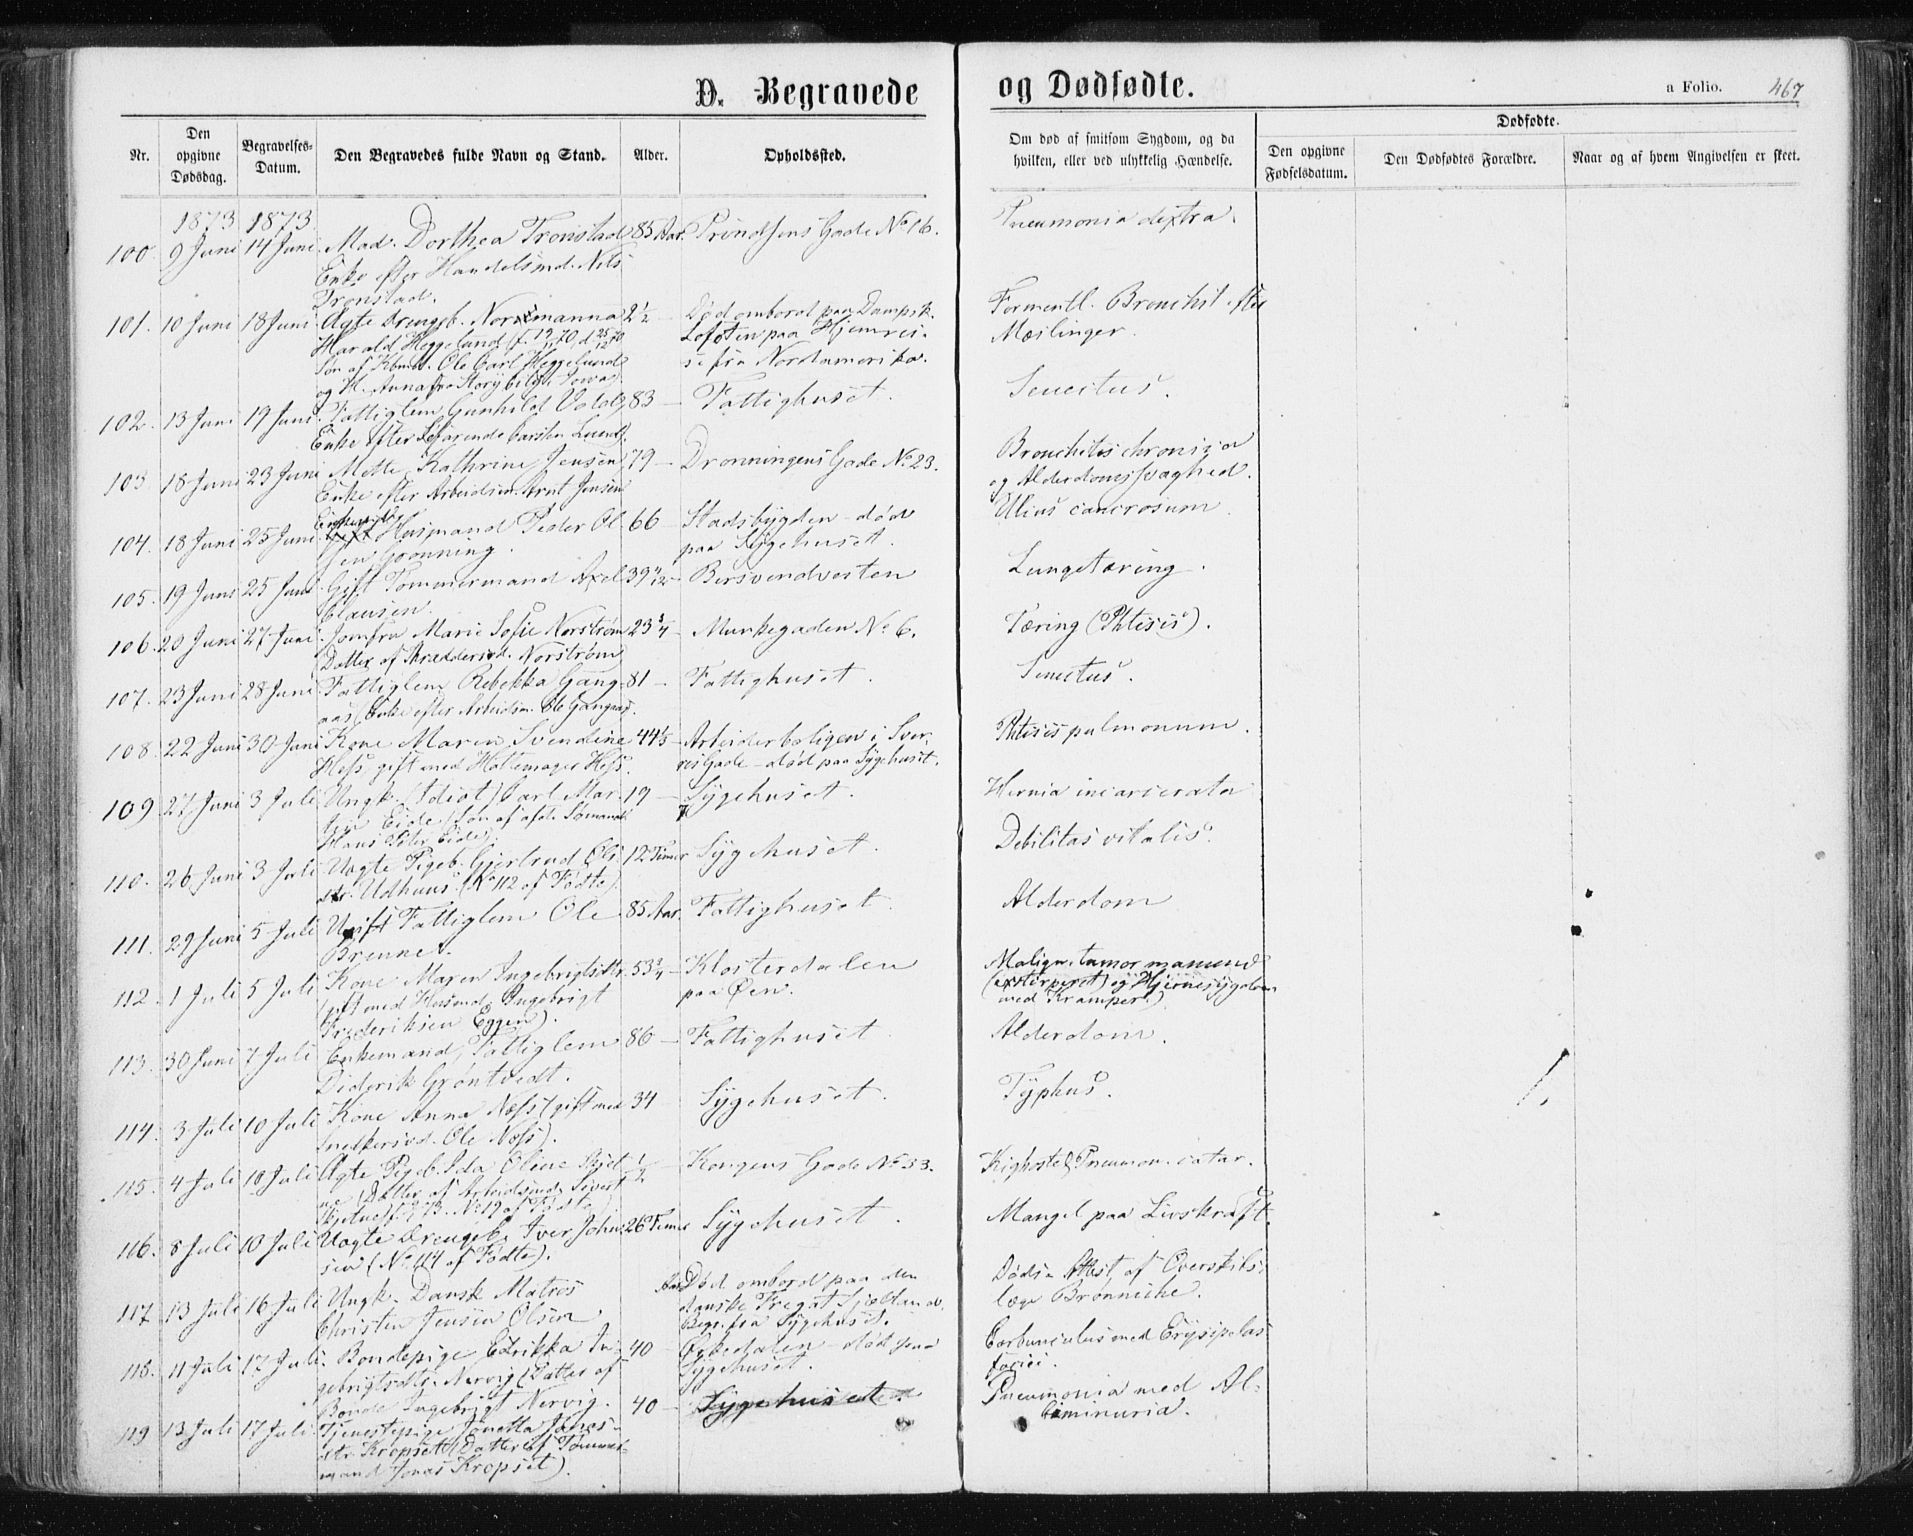 D. Begravede og Dødfødte.
a Folio. 467
Nr.
Den opgivne Dødsdag.
Begravelses-Datum.
Den Begravedes fulde Navn og Stand.
Alder.
Opholdssted.
Om død af smitsom Sygdom, og da hvilken, eller ved ulykkelig Hændelse.
Dødfødte.
Den opgivne Fødselsdatum.
Den Dødfødtes Forældre.
Naar og af hvem Angivelsen er skeet.
1873 1873
100. 9 Juni 14 Juni Mad. Dorthea Tronstad 85 Aar. Prindsens Gade No 16. Pneumonia dextra
Enke efter Handelsmd. Nils
Tronstad.
101. 10 Juni 18 Juni Ægte Drengeb. Normanna 2½ Død ombord paa Dampsk. Formentl. Bronchit efter
Harald Heggelund Lofoten paa Hjemrei- Mæslinger
Søn af Ole Carl Heggelund se fra Nordamerika.
og H. Anna fra
102. 13 Juni 19 Juni Fattiglem Gunhild 83 — Fattighuset. Senectus.
Enke efter Carsten Lund).
103 18 Juni 23 Juni Mette Kathrine Jensen 79 — Dronningens Gade No 23. Bronchitis chronica
Enke efter Arbeidsm. Arnt Jensen og Alderdomssvaghed.
104. 18 Juni 25 Juni Husmand Peder Ol- 66 — Stadsbygden - død Ulcus cancrosum
sen paa Sygehuset.
105. 19 Juni 25 Juni Gift Tømmermand Axel 39 11/12 — Bersvendvesten Lungetæring.
Clausen.
106. 20 Juni 27 Juni Jomfru Marie Sofie Norstrøm 23¾ — Munkegaden No 6. Tæring (Phtisis).
Datter af Norstrøm
107. 23 Juni 28 Juni Fattiglem Rebekka Gang- 81 — Fattighuset. Senectus.
aas (Enke efter Arbeidsm. Ole Gangaas).
108. 22 Juni 30 Juni Kone Maren Svendine 44½ — Arbeiderboligen i Sver- Phtisis pulmonum.
Hess, gift med Hess. res Gade - død paa Sygehuset.
109 27 Juni 3 Juli Ungk. (Idiot) Carl Mar- 19 — Sygehuset. Hernia incarcerata
tin Eide (Søn af afdøde Sømand
Hans Peter Eide).
110. 26 Juni 3 Juli Uægte Pigeb. Gjertrud Ols- 12 Timer Sygehuset. Debilitas vitalis.
dtr. Udhuus (No 112 af Fødte).
111. 29 Juni 5 Juli Ugift Fattiglem Ole 85 Aar. Fattighuset Alderdom
Brenne.
112. 1 Juli 5 Juli Kone Maren Ingebrigtsdtr. 53¾ — Klosterdalen Malign. tumor mammæ
(gift med Husmd. Ingebrigt paa Øen. (exstirperet) og Hjernesygdom
Frederiksen Eggen). med Kramper.)
113. 30 Juni 7 Juli Enkemand, Fattiglem 86 — Fattighuset Alderdom.
Diderik Grøntvedt.
114. 3 Juli 10 Juli Kone Anna Næss (gift med 34 Sygehuset. Typhus.
Snedkersvd. Ole Næss).
115. 4 Juli 10 Juli Ægte Pigeb. Ida Oline Skjet- ½ — Kongens Gade No 33. Kighoste & Pneumon. catar.
ne (Datter af Arbeidsmd. Sivert
Skjetne f. 73. No 19 af Fødte)
116. 8 Juli 10 Juli Uægte Drengeb. Iver John- 26 Timer Sygehuset. Mangel paa Livskraft.
sen (No 114 af Fødte).
117 13 Juli 16 Juli Ungk. Dansk Matros Død ombord paa den Døds-Attest af Overskibs-
Christen Jensen Olsen danske Fregat Sjælland. læge Brønniche.
Begr. fra Sygehuset.
118. 11 Juli 17 Juli Bondepige Edrikka In- 40 — Ørkedalen - død paa Carbunculus med Erysipelas
gebrigtsdtr. Nervig (Datter af Sygehuset. faciei.
Bonde Ingebrigt Nervig.
119 13 Juli 17 Juli Tjenestepige Jonetta Jonas- 40 — Sygehuset Pneumonia med Al-
dtr. Kropset (Datter af Tømmer- buminuria.
mand Jonas Kropset).